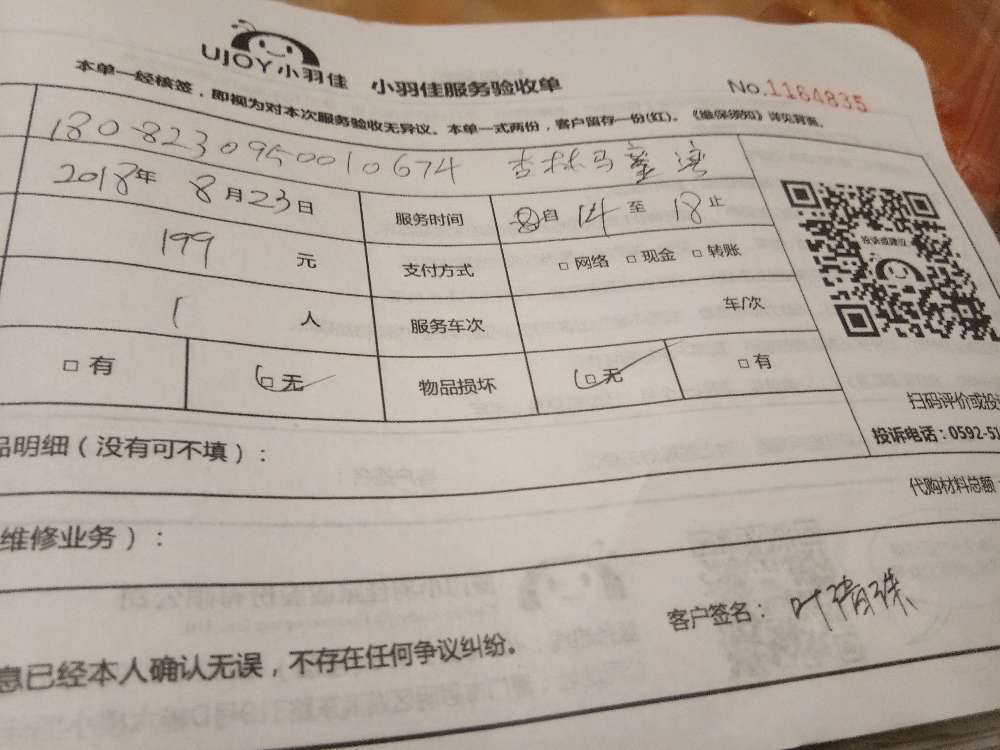 UJOY小羽佳 小羽佳服务验收单
No.1164835
本单一经核签，即视为对本次服务验收无异议。本单一式两份，客户留存一份(红)。《维保须知》详见背面。
18082309500010674 杏林
2018年 8月23日 服务时间 自 14 至 18 止
199 元 支付方式 □ 网络 □ 现金 □ 转账
1 人 服务车次 车/次
□ 有 □ 无 物品损坏 □ 无 □ 有
投诉或建议
扫码评价或投
投诉电话：0592-51
品明细（没有可不填）：
代购材料总额
维修业务）：
客户签名：
息已经本人确认无误，不存在任何争议纠纷。